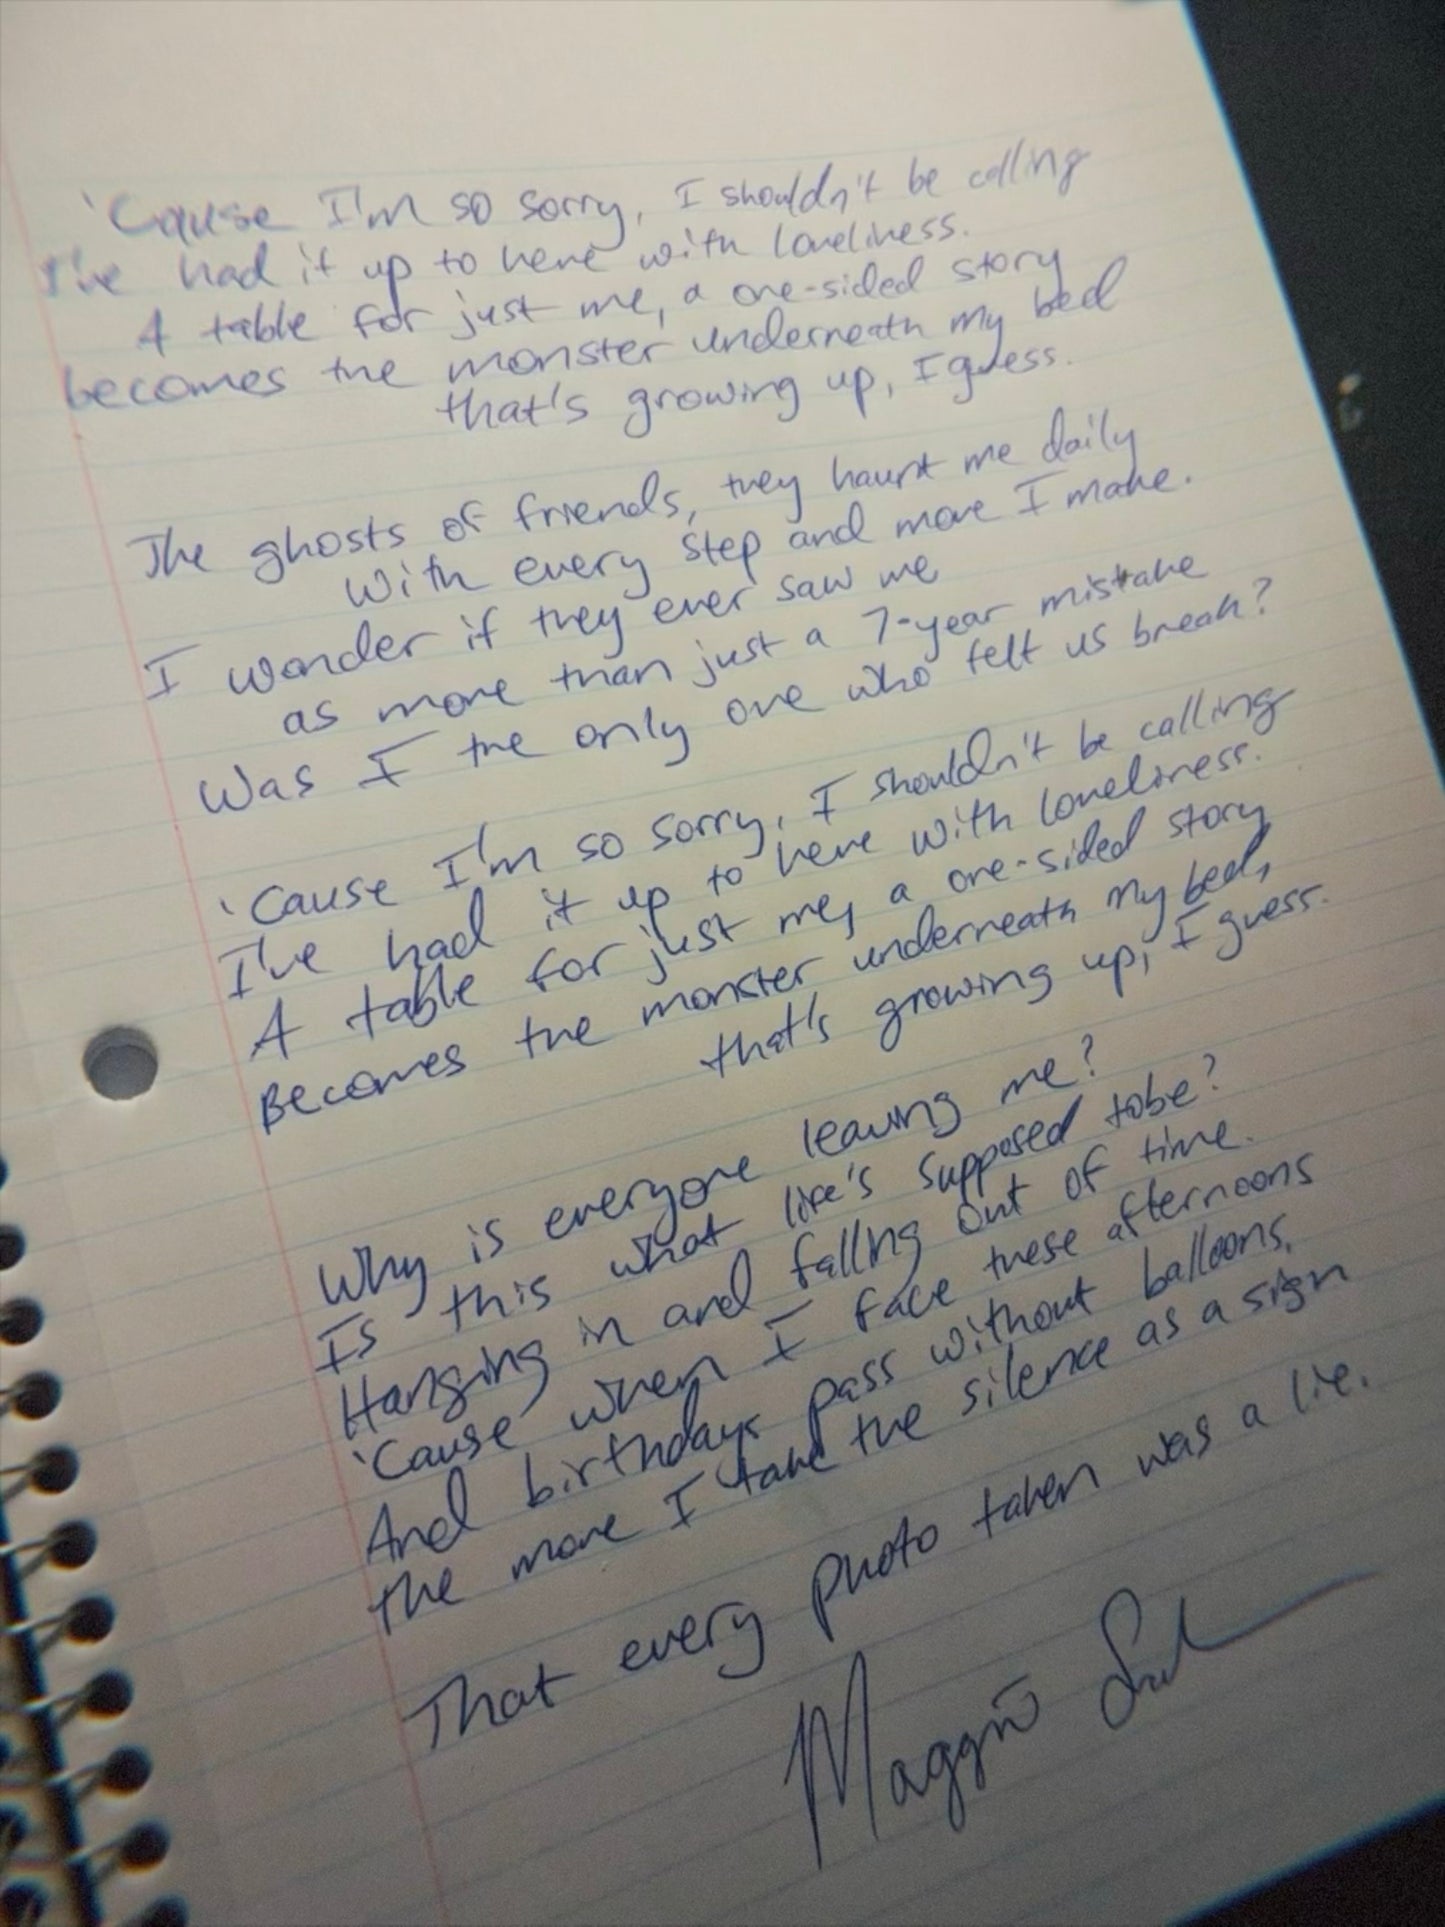 'Cause I'm so sorry, I shouldn't be calling
I've had it up to here with loneliness.
A table for just me, a one-sided story
becomes the monster underneath my bed
that's growing up, I guess.
The ghosts of friends, they haunt me daily
with every step and move I make.
I wonder if they ever saw me
as more than just a 7-year mistake
Was I the only one who felt us break?
'Cause I'm so sorry, I shouldn't be calling
I've had it up to here with loneliness.
A table for just me, a one-sided story
Becomes the monster underneath my bed,
that's growing up, I guess.
Why is everyone leaving me?
Is this what life's supposed tobe?
Hanging in and falling out of time.
'Cause when I face these afternoons
And birthdays pass without balloons,
the more I take the silence as a sign
That every photo taken was a lie.
Maggie